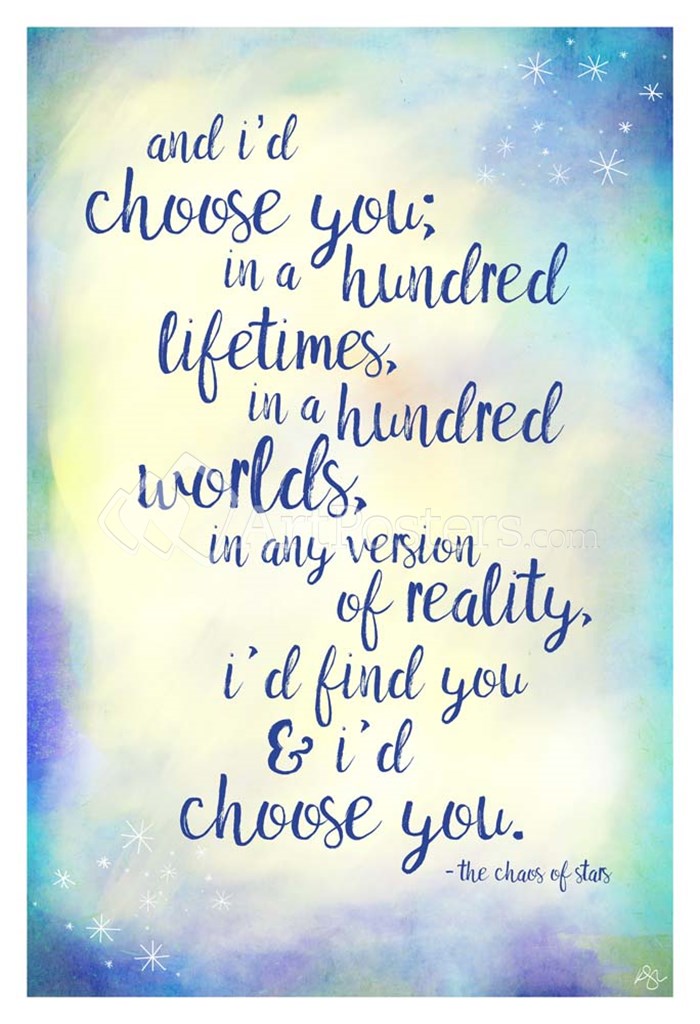 and i'd
choose you;
in a hundred
lifetimes,
in a hundred
worlds,
ArtPosters.com
in any version
of reality,
i'd find you
& i'd
choose you.
- the chaos of stars